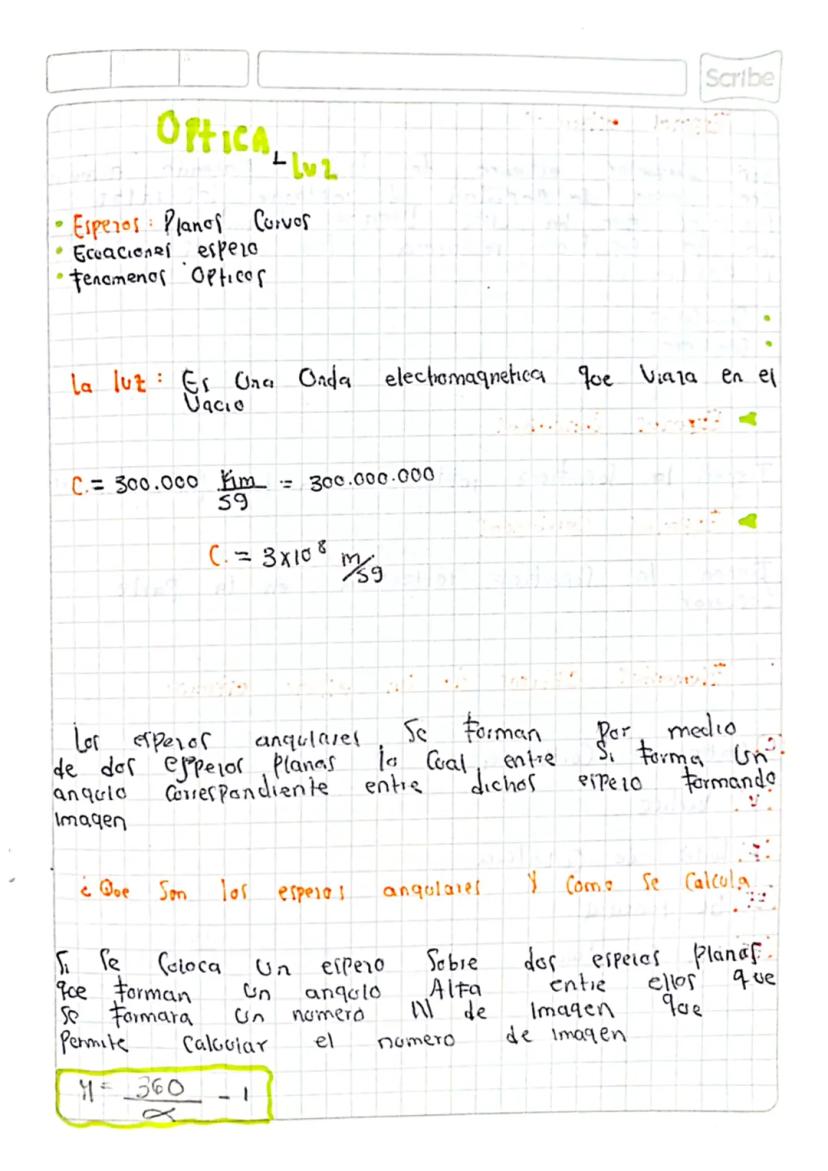 Scribe
OPtICA
luz
• Esperos: Planos Curvos
• Ecuaciones espero
• fenomenos OPticos
la luz: Es Una Onda electromagnetica que Viaja en el
Vacio
C. = 300.000 Km/sg = 300.000.000
C. = 3x10⁸ m/sg
Los esperos angulares Se forman Por medio
de dos espejos Planas lo Cual entre Si forma Un
angulo Correspondiente entre dichos espero formando
Imagen
¿ Que Son los esperos angulares Y Como Se Calcula
Si Se Coloca Un espero Sobre dos espejos Planos
que forman Un angulo Alfa entre ellos que
se formara Un numero N de Imagen que
Permite Calcular el numero de imagen
N = 360/α - 1